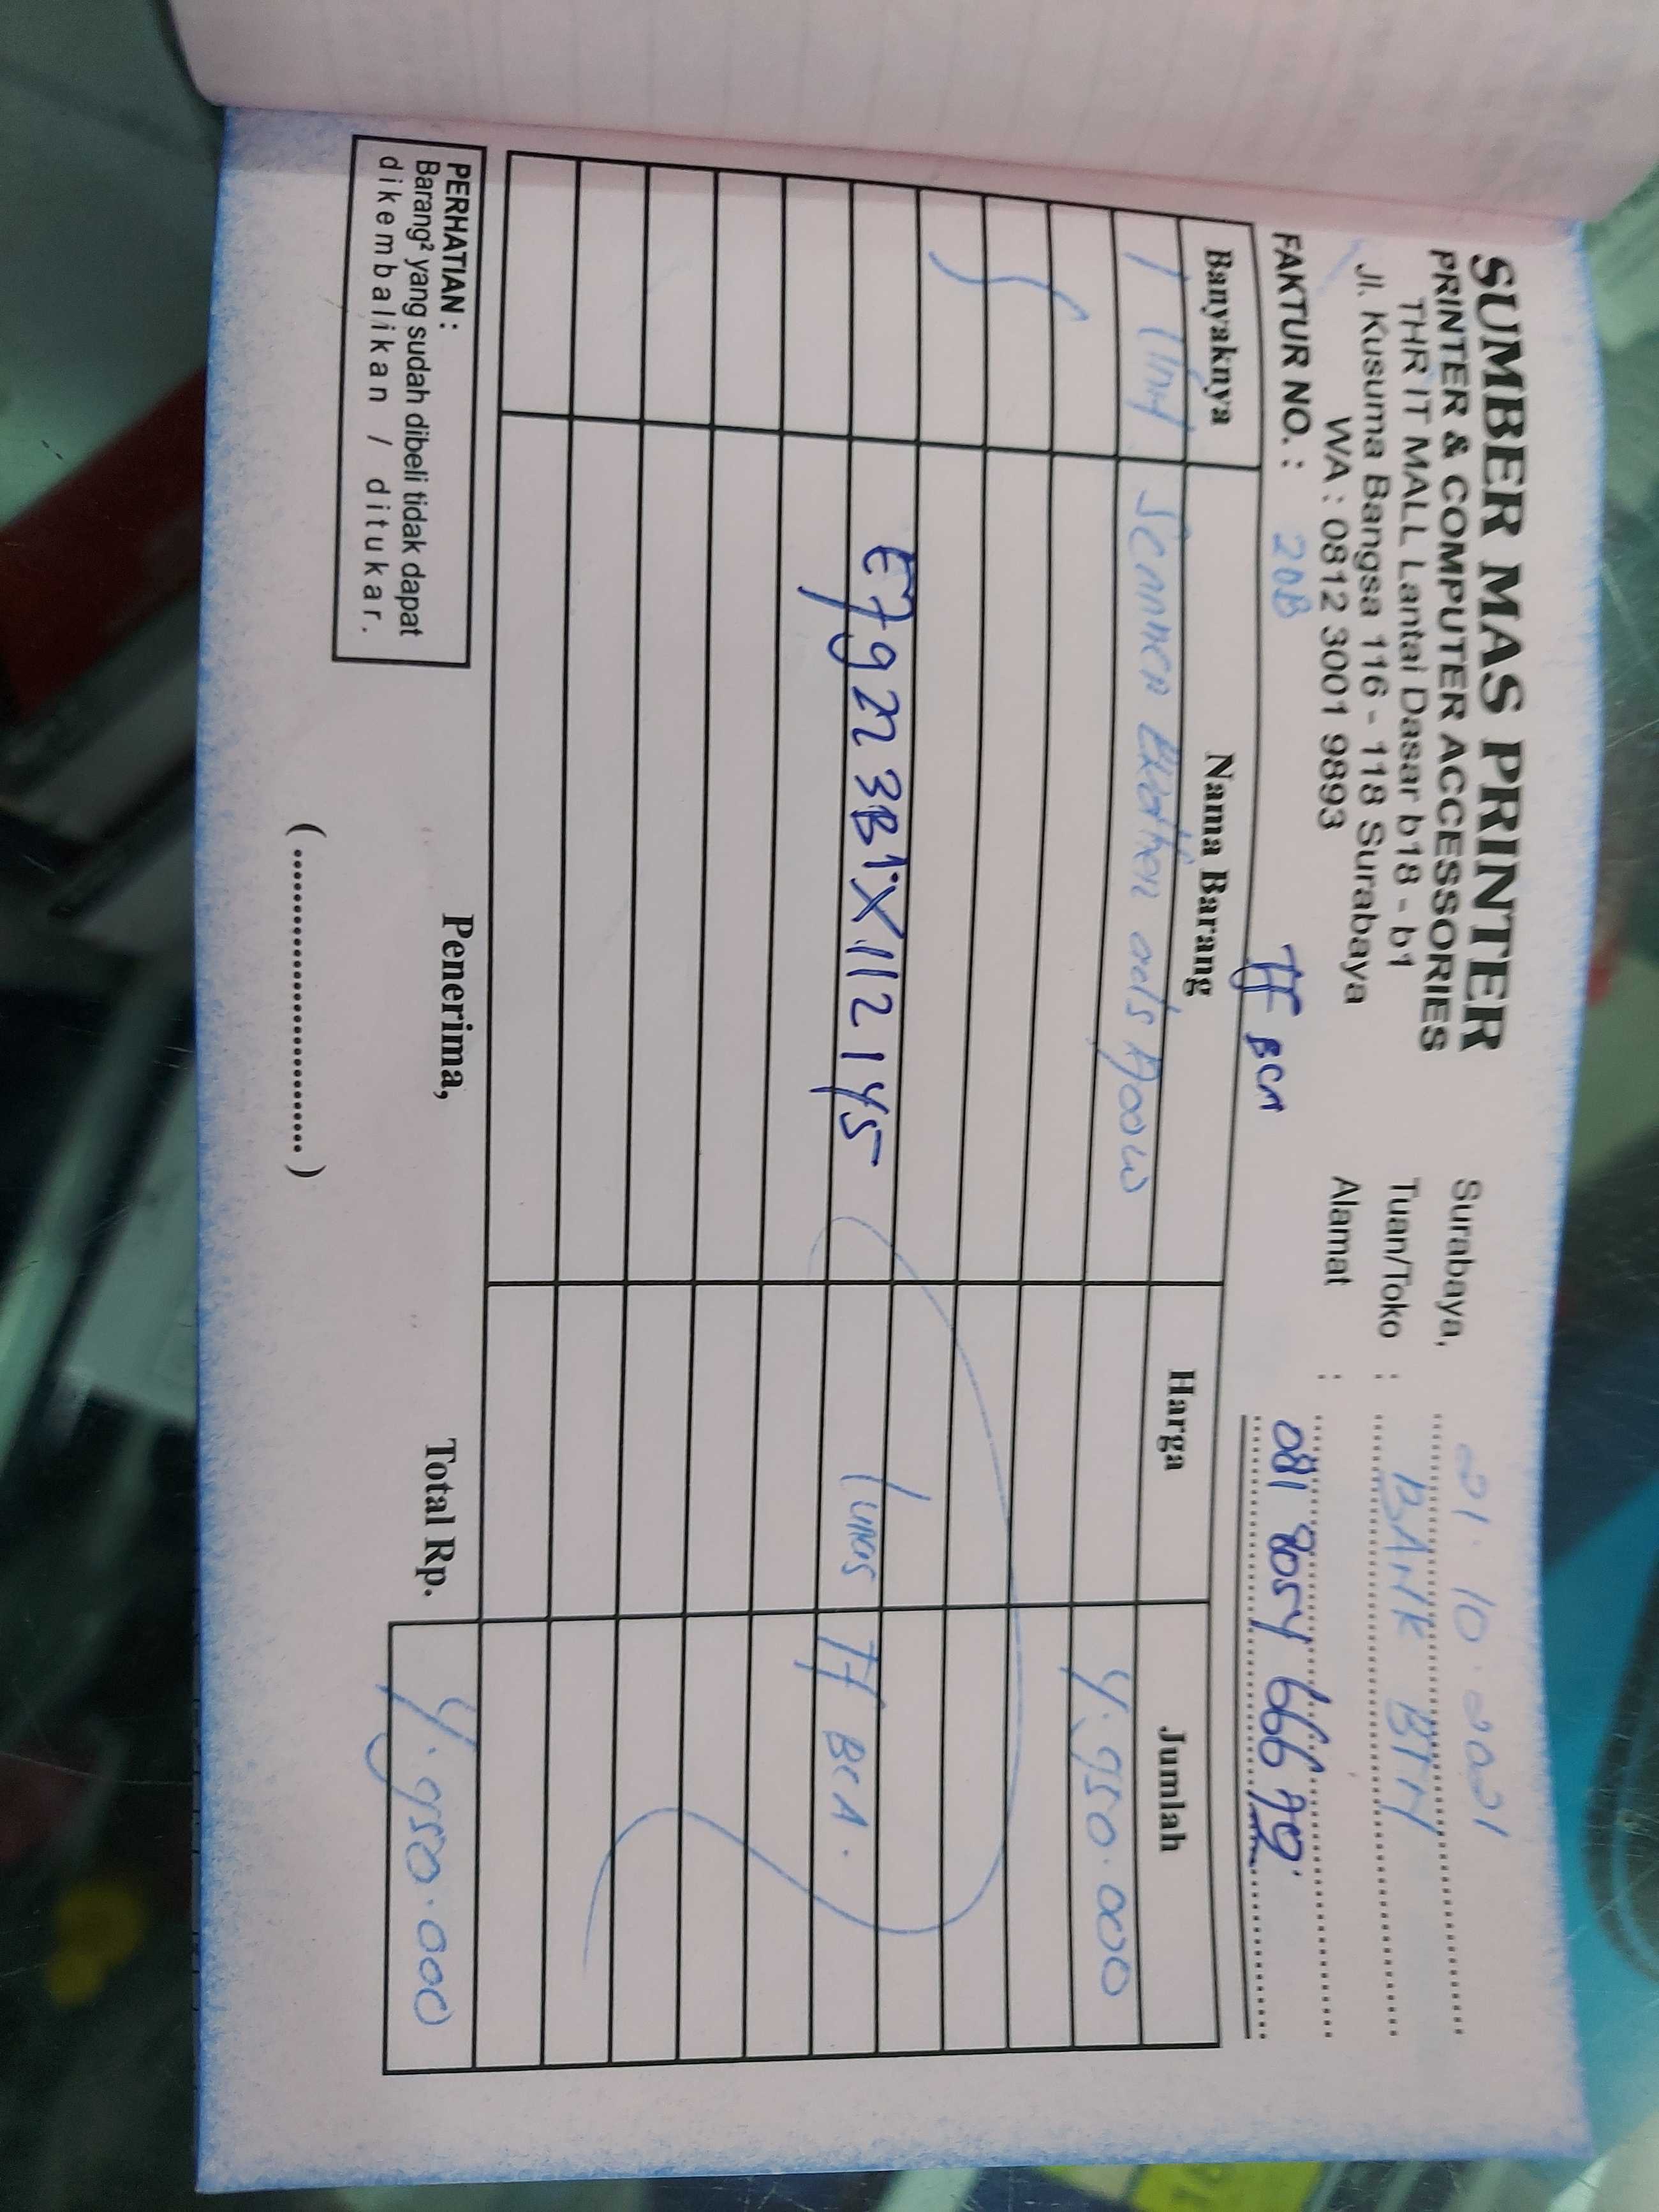 SUMBER MAS PRINTER
PRINTER & COMPUTER ACCESSORIES
THR IT MALL Lantai Dasar b18 - b1
Jl. Kusuma Bangsa 116 - 118 Surabaya
WA : 0812 3001 9893
Surabaya, 21. 10. 2021
Tuan/Toko : BANK BTN
Alamat :
081 8054 666 79.
FAKTUR NO. : 20B TF BCA
Banyaknya Nama Barang Harga Jumlah
1 Unit Scanner ads 4.950.000
E79223B1X112145 Lunas TF BCA.
PERHATIAN :
Barang² yang sudah dibeli tidak dapat
dikembalikan / ditukar.
Penerima,
Total Rp. 4.950.000
(..............................)